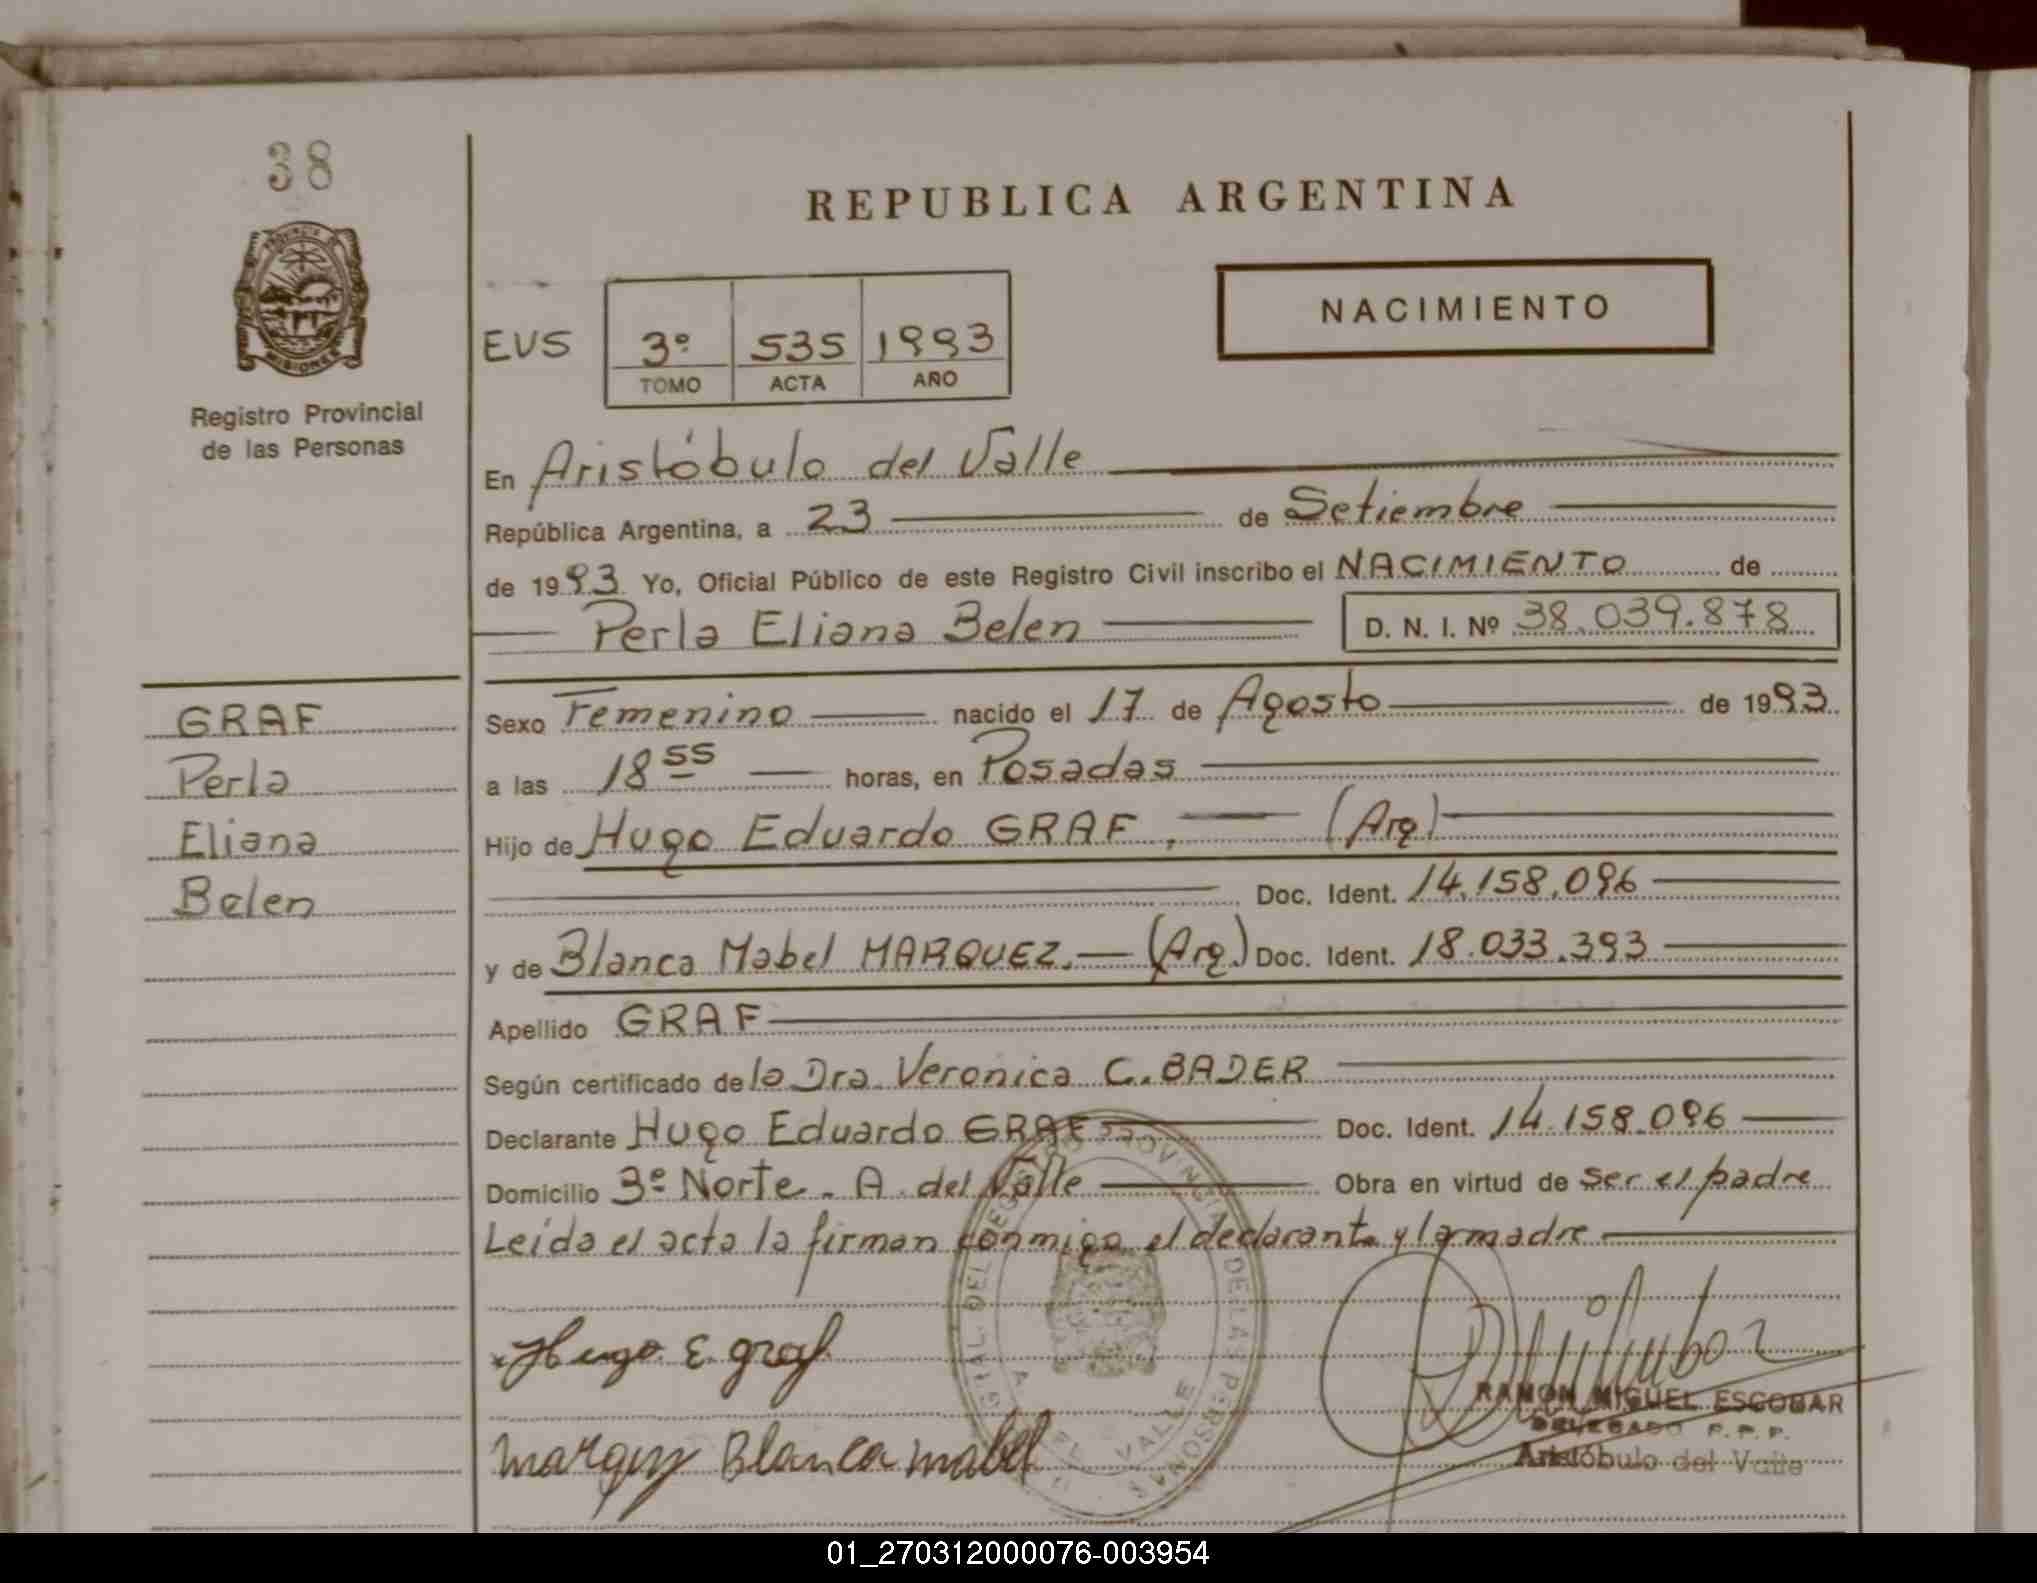 38
REPUBLICA ARGENTINA
PROVINCIA DE
MISIONES
NACIMIENTO
EVS 3º 535 1993
TOMO ACTA AÑO
Registro Provincial
de las Personas
En Aristóbulo del Valle
República Argentina, a 23 de Setiembre
de 1993 Yo, Oficial Público de este Registro Civil inscribo el NACIMIENTO de
Perla Eliana Belen D. N. I. Nº 38.039.878
GRAF
Perla
Eliana
Belen
Sexo Femenino nacido el 17 de Agosto de 1993
a las 18 55 horas, en Posadas
Hijo de Hugo Eduardo GRAF, (Arg)
Doc. Ident. 14.158.096
y de Blanca Mabel MARQUEZ. (Arg.) Doc. Ident. 18.033.393
Apellido GRAF
Según certificado de la Dra. Veronica C. BADER
Declarante Hugo Eduardo GRAF Doc. Ident. 14.158.096
Domicilio 3º Norte. A. del Valle Obra en virtud de ser el padre
Leida el acta la firman conmigo el declarante y la madre
Hugo E. graf
Marquez Blanca mabel
RAMON MIGUEL ESCOBAR
DELEGADO R. P. P.
Aristóbulo del Valle
01_270312000076-003954